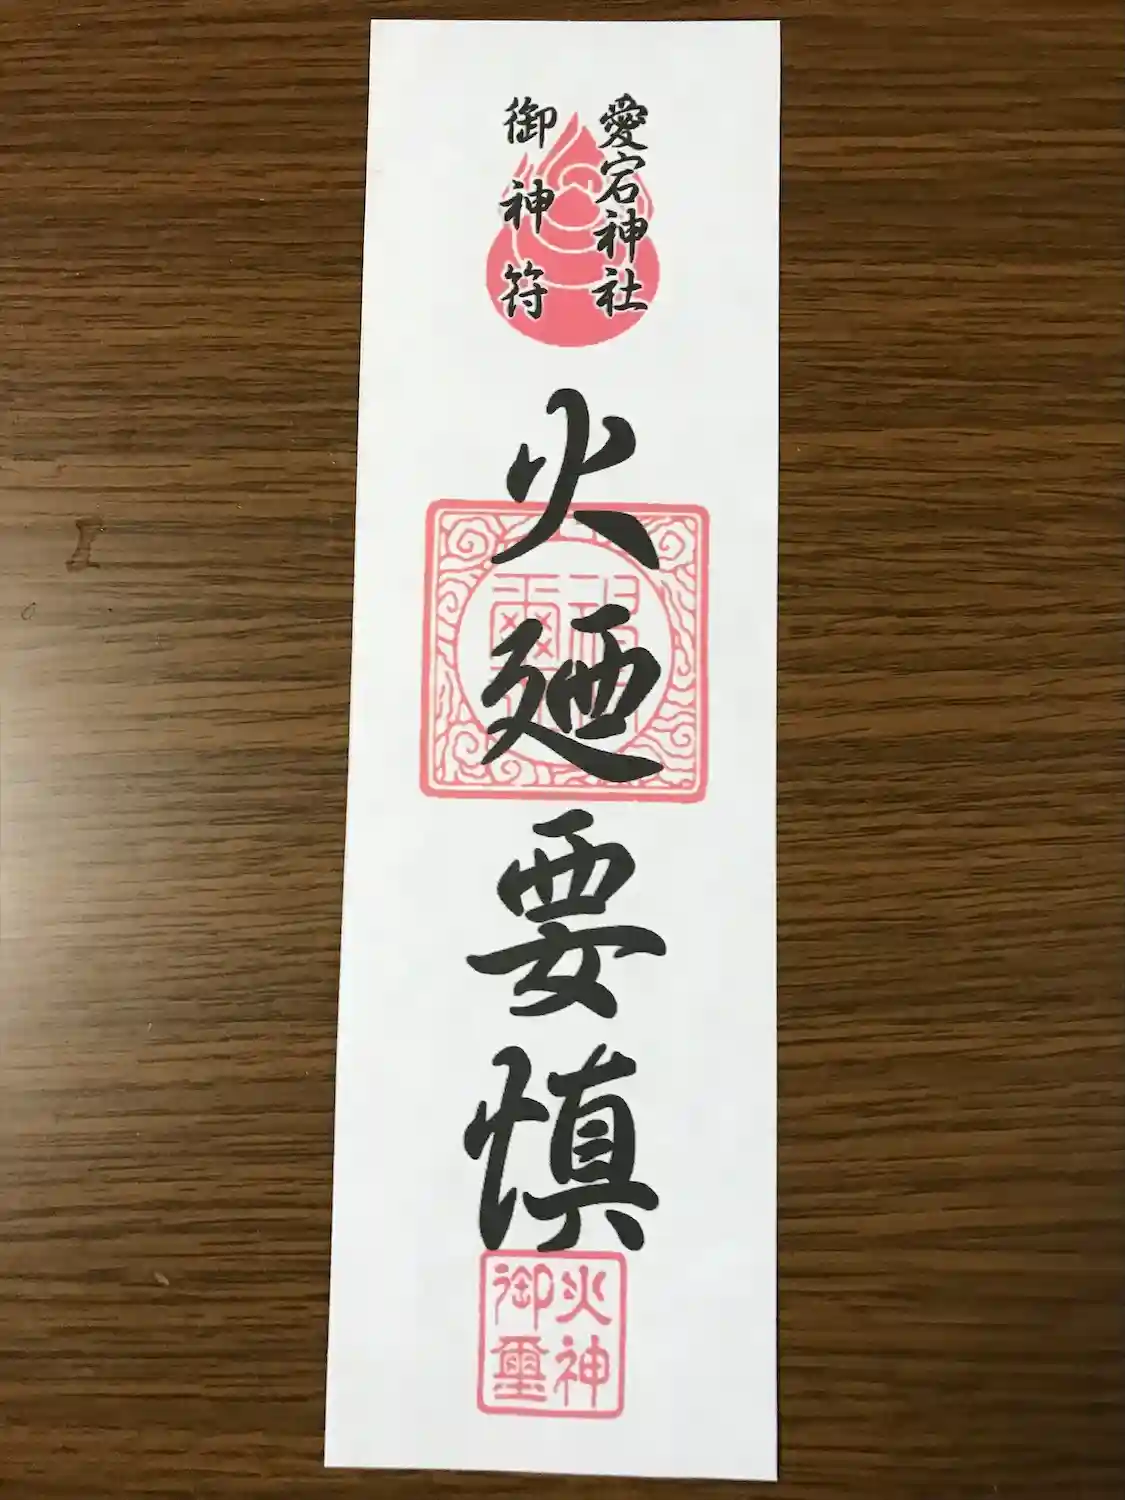 愛宕神社
御神符
火廼要慎
火神
御璽